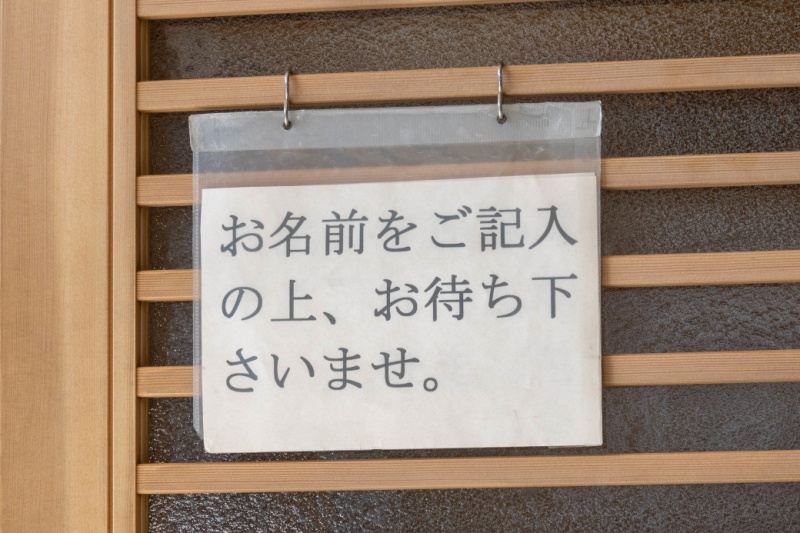 お名前をご記入
の上、お待ち下
さいませ。